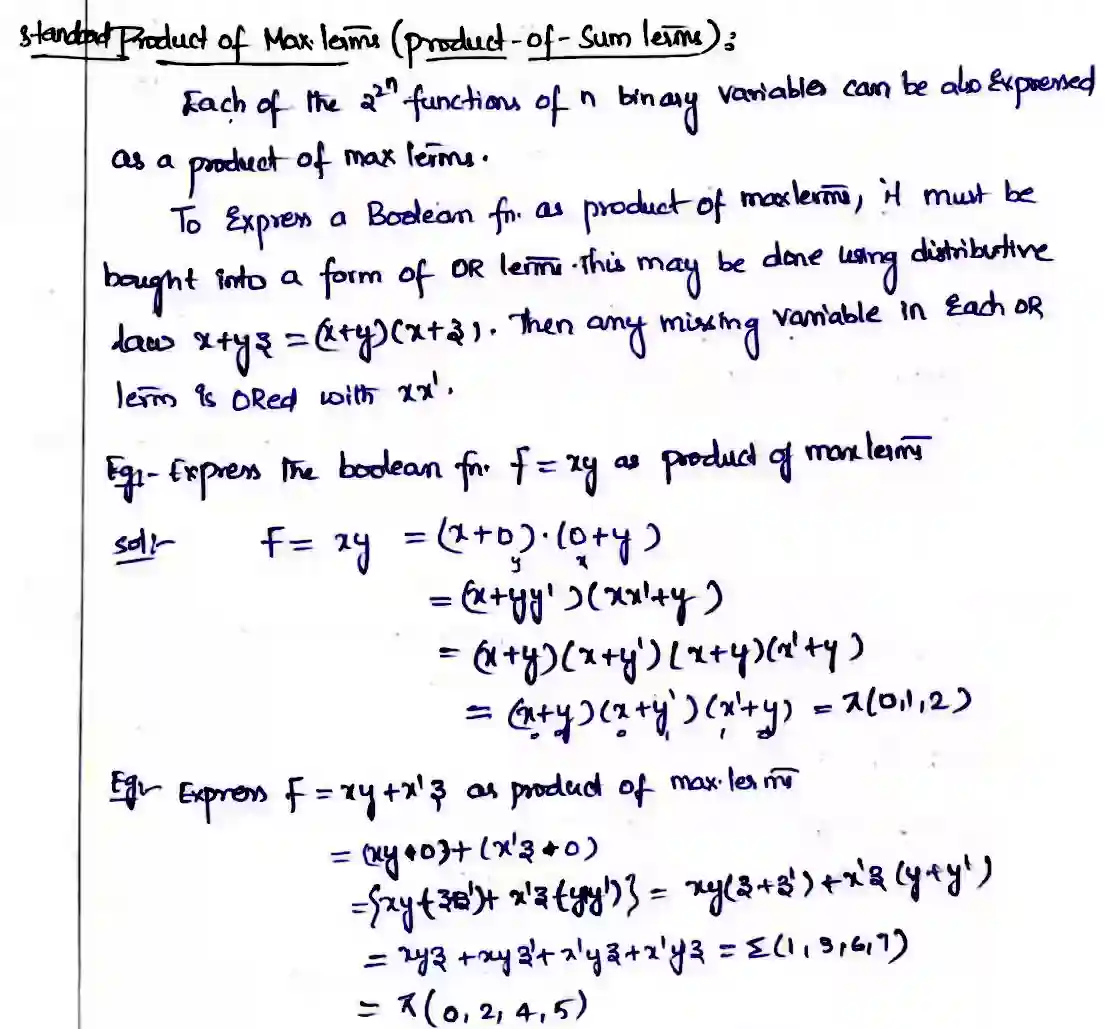 Standard Product of Max terms (product-of-Sum terms):
Each of the 2^2^n functions of n binary variables can be also Expressed
as a product of max terms.
To Express a Boolean fn. as product of maxterms, it must be
bought into a form of OR terms. This may be done using distributive
law x+yz = (x+y)(x+z). Then any missing variable in Each OR
term is ORed with xx'.
Eg1- Express the boolean fn. f = xy as product of maxterms
Sol:- F = xy = (x+0).(0+y)
y x
= (x+yy')(xx'+y)
= (x+y)(x+y')(x+y)(x'+y)
= (x+y)(x+y')(x'+y) = π(0,1,2)
0 0 0 1 1 0
Eg2- Express f = xy+x'z as product of max.terms
= (xy+0)+(x'z+0)
={xy+(zz')+x'z+(yy')} = xy(z+z')+x'z(y+y')
= xyz+xyz'+x'yz+x'y'z = Σ(1,3,6,7)
= π(0,2,4,5)